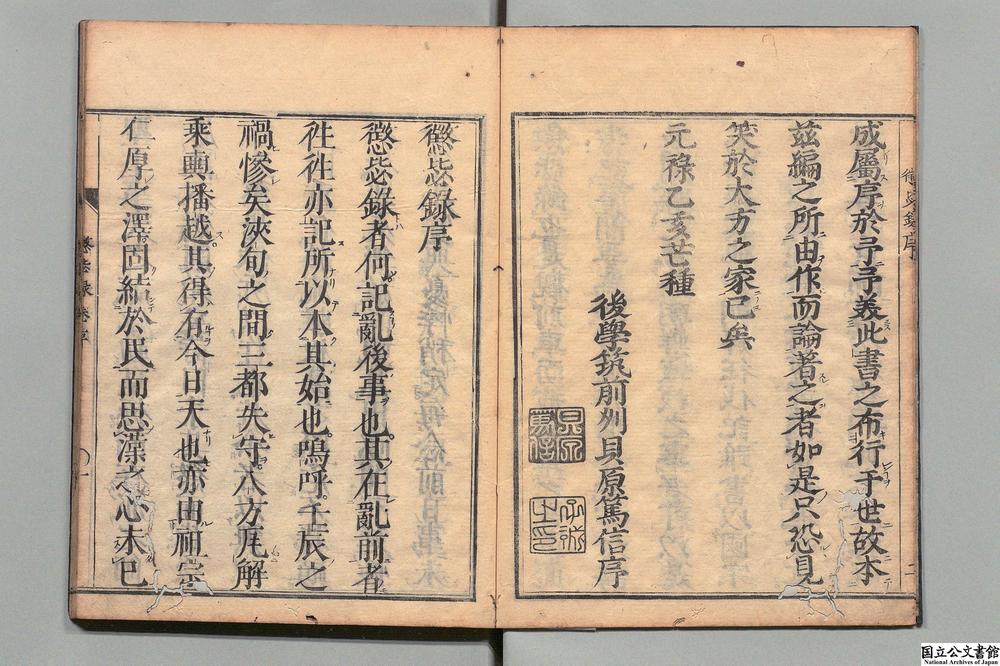 成屬序於予予義此書之布行于世故本
玆編之所由作而論著之者如是只恐見
笑於大方之家已矣
元祿乙亥芒種
後學筑前州貝原篤信序
懲毖錄序
懲毖錄者何記亂後事也其在亂前者
徃徃亦記所以本其始也嗚呼壬辰之
禍慘矣浹旬之間三都失守八方瓦解
乘輿播越其得有今日天也亦由祖宗
仁厚之澤固結於民而思漢之心未已
国立公文書館
National Archives of Japan